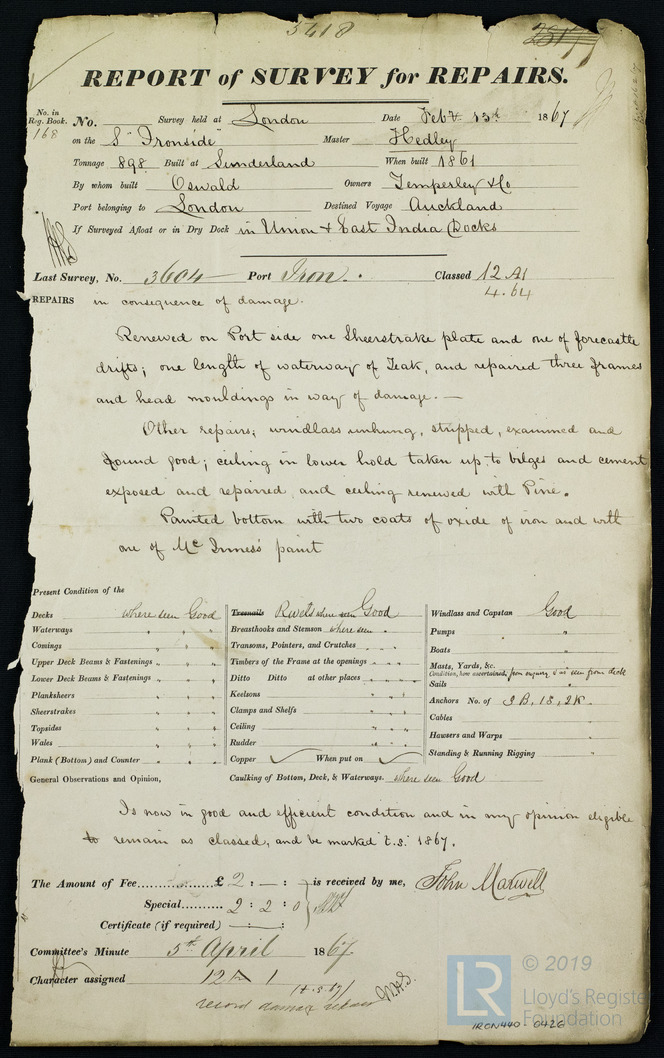 5418
REPORT of SURVEY for REPAIRS.
No. in Reg. Book. 168
No. Survey held at London Date Feby 13th 1867
on the S "Ironside" Master Hedley
Tonnage 898 Built at Sunderland When built 1861
By whom built Oswald Owners Temperley & Co
Port belonging to London Destined Voyage Auckland
If Surveyed Afloat or in Dry Dock in Union & East India Docks
Last Survey, No. 3604 Port Iron. Classed 12 A1
4.64
REPAIRS in consequence of damage.
Renewed on Port side one Sheerstrake plate and one of forecastle
drifts; one length of waterway of Teak, and repaired three frames
and head mouldings in way of damage. —
Other repairs; windlass unhung, stripped, examined and
found good; ceiling in lower hold taken up to bilges and cement
exposed and repaired, and ceiling renewed with Pine.
Painted bottom with two coats of oxide of iron and with
one of Mc Inness's paint
Present Condition of the
Decks where seen Good
Waterways " " "
Comings " " "
Upper Deck Beams & Fastenings " " "
Lower Deck Beams & Fastenings " " "
Planksheers " " "
Sheerstrakes " " "
Topsides " " "
Wales " " "
Plank (Bottom) and Counter " " "
Treenails Rivets where seen Good
Breasthooks and Stemson where seen "
Transoms, Pointers, and Crutches " " "
Timbers of the Frame at the openings " " "
Ditto Ditto at other places " " "
Keelsons " " "
Clamps and Shelfs " " "
Ceiling " " "
Rudder " " "
Copper ✓ When put on ✓
Caulking of Bottom, Deck, & Waterways. where seen Good
Windlass and Capstan Good
Pumps "
Boats "
Masts, Yards, &c. "
Condition, how ascertained, from enquiry & as seen from deck
Sails "
Anchors No. of 3B, 1S, 2K.
Cables "
Hawsers and Warps "
Standing & Running Rigging "
General Observations and Opinion,
Is now in good and efficient condition and in my opinion eligible
to remain as classed, and be marked t.s. 1867.
The Amount of Fee £ 2 : — : is received by me, John Maxwell
Special 2 : 2 : 0
Certificate (if required) — : :
Committee's Minute 5th April 1867
Character assigned 12 A 1
record damage repair
© 2019
LR
Lloyd's Register
Foundation
IRON440-0426